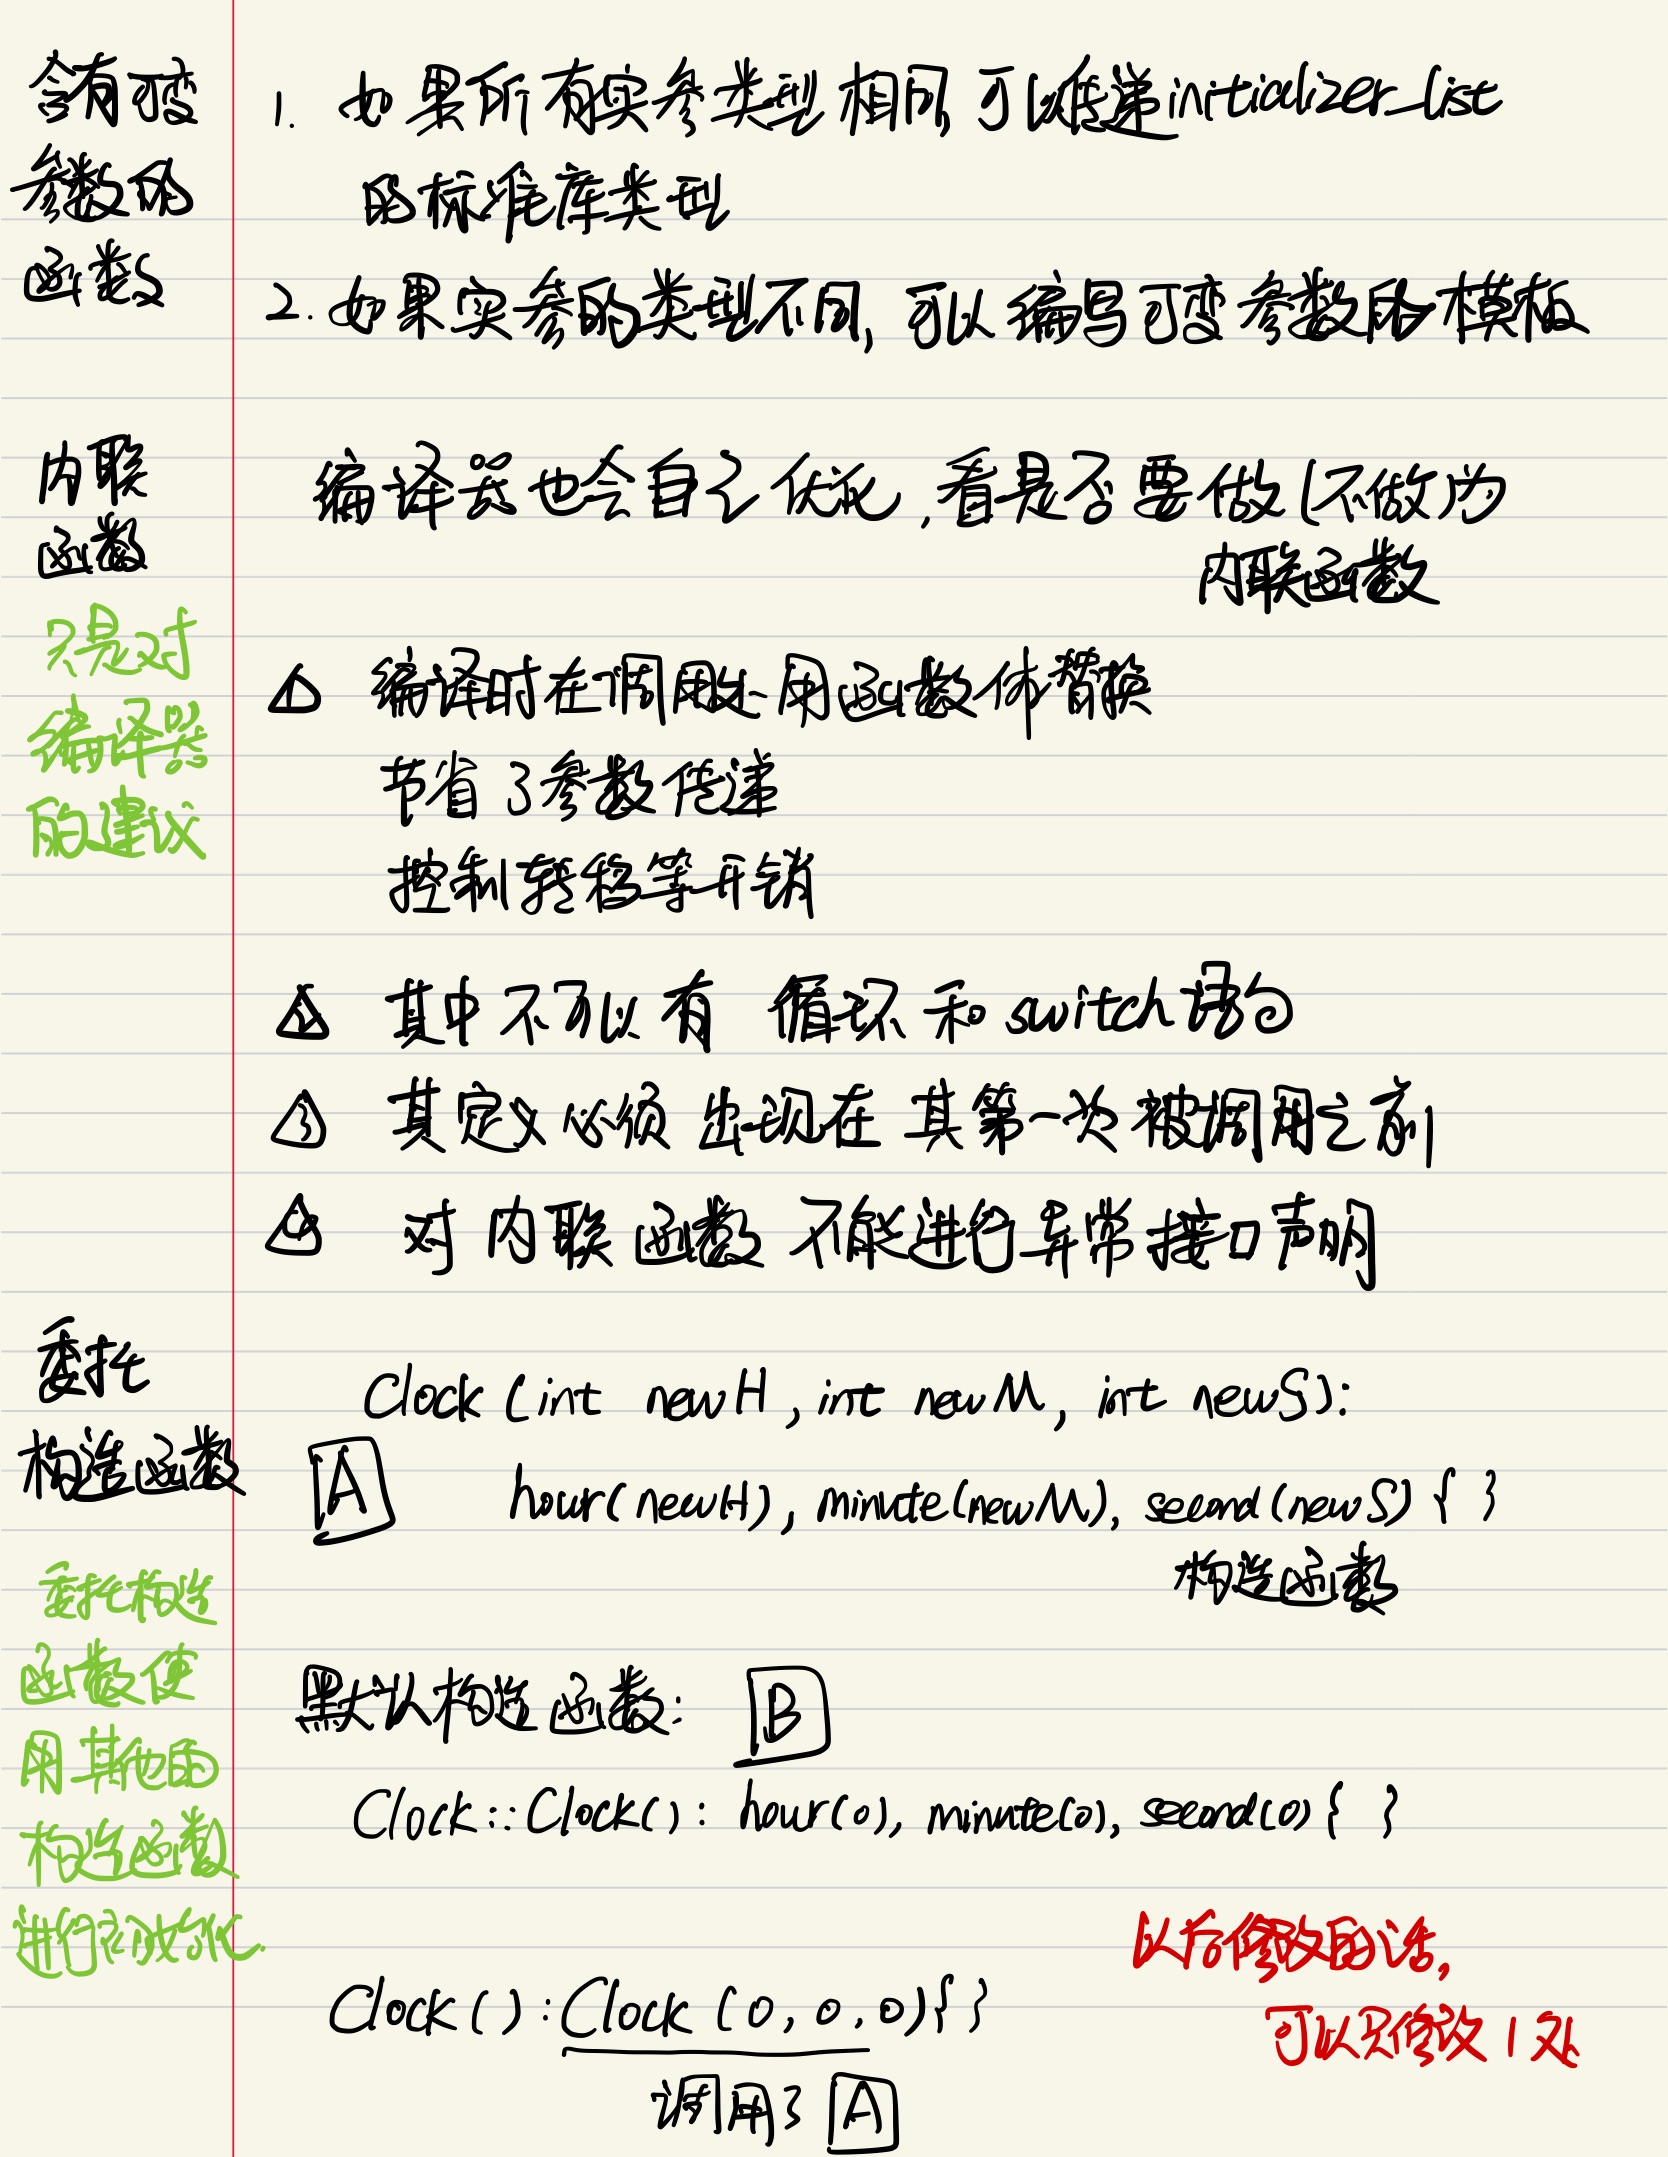 含有可变
参数的
函数
1. 如果所有实参类型相同,可以传递initializer_list
的标准库类型
2. 如果实参的类型不同,可以编写可变参数的模板
内联
函数
只是对
编译器
的建议
编译器也会自己优化,看是否要做(不做)为
内联函数
① 编译时在调用处用函数体替换
节省了参数传递
控制转移等开销
② 其中不可以有 循环和switch语句
③ 其定义必须出现在其第一次被调用之前
④ 对内联函数不能进行异常接口声明
委托
构造函数
委托构造
函数使
用其他的
构造函数
进行初始化.
Clock (int newH, int newM, int newS):
A hour(newH), minute(newM), second(newS) { }
构造函数
默认构造函数: B
Clock::Clock(): hour(0), minute(0), second(0) { }
以后修改的话,
可以只修改1处
Clock(): Clock (0, 0, 0) { }
调用了 A